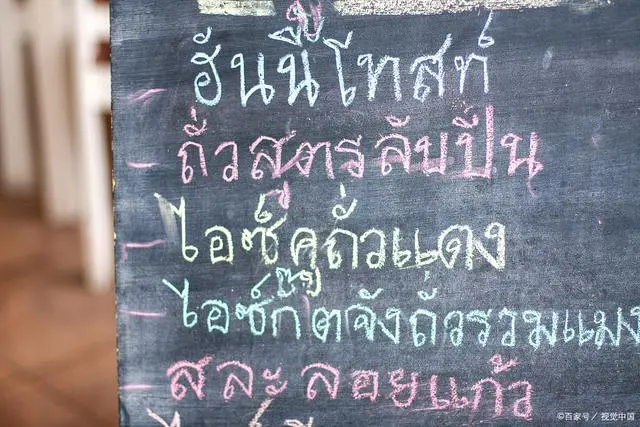 ฮันนี่โทสท์
ถั่วสตรอลับปั่น
ไอซ์คูถั่วแดง
ไอซ์กี๊ตจังถั่วรวมแมง
สละลอยแก้ว
©百家号／视觉中国